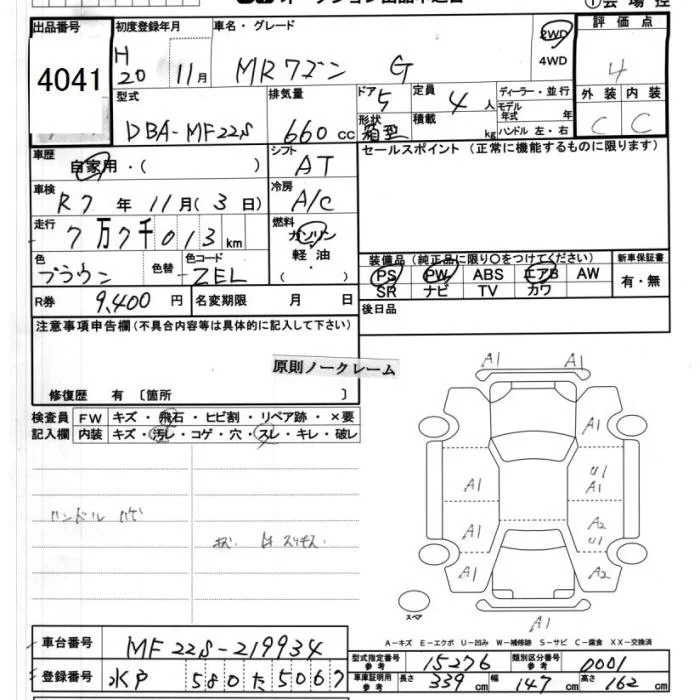 オークション出品申込書
出品番号 4041
初度登録年月 H20 11月
車名・グレード MRワゴン G
2WD 4WD
評価点 4
外装 C 内装 C
型式 DBA-MF22S
排気量 660cc
ドア 5 形状 箱型
定員 4人 積載 kg
ディーラー・並行
モデル年式 年
ハンドル 左・右
車歴 自家用・( )
シフト AT
セールスポイント(正常に機能するものに限ります)
車検 R7年11月(3日)
冷房 A/C
走行 7万7千013km
燃料 ガソリン 軽油・( )
色 ブラウン 色替 色コード ZEL
装備品(純正品に限り○をつけてください) 新車保証書
PS PW ABS エアB AW 有・無
SR ナビ TV カワ
R券 9,400円 名変期限 月 日
後日品
注意事項申告欄(不具合内容等は具体的に記入して下さい)
原則ノークレーム
修復歴 有 〔箇所 〕
検査員 FW キズ・飛石・ヒビ割・リペア跡・×要
記入欄 内装 キズ・汚レ・コゲ・穴・スレ・キレ・破レ
ハンドル ハゲ
A1 A1
A1
A1 U1 A1
A1 A2 U1
A1 A2
A1
スペア
A-キズ E-エクボ U-凹み W-補修跡 S-サビ C-腐食 XX-交換済
車台番号 MF22S-219934
登録番号 水戸 580 た 5067
型式指定番号 参考 15276 類別区分番号 参考 0001
車庫証明用 参考 長さ 339cm 幅 147cm 高さ 162cm